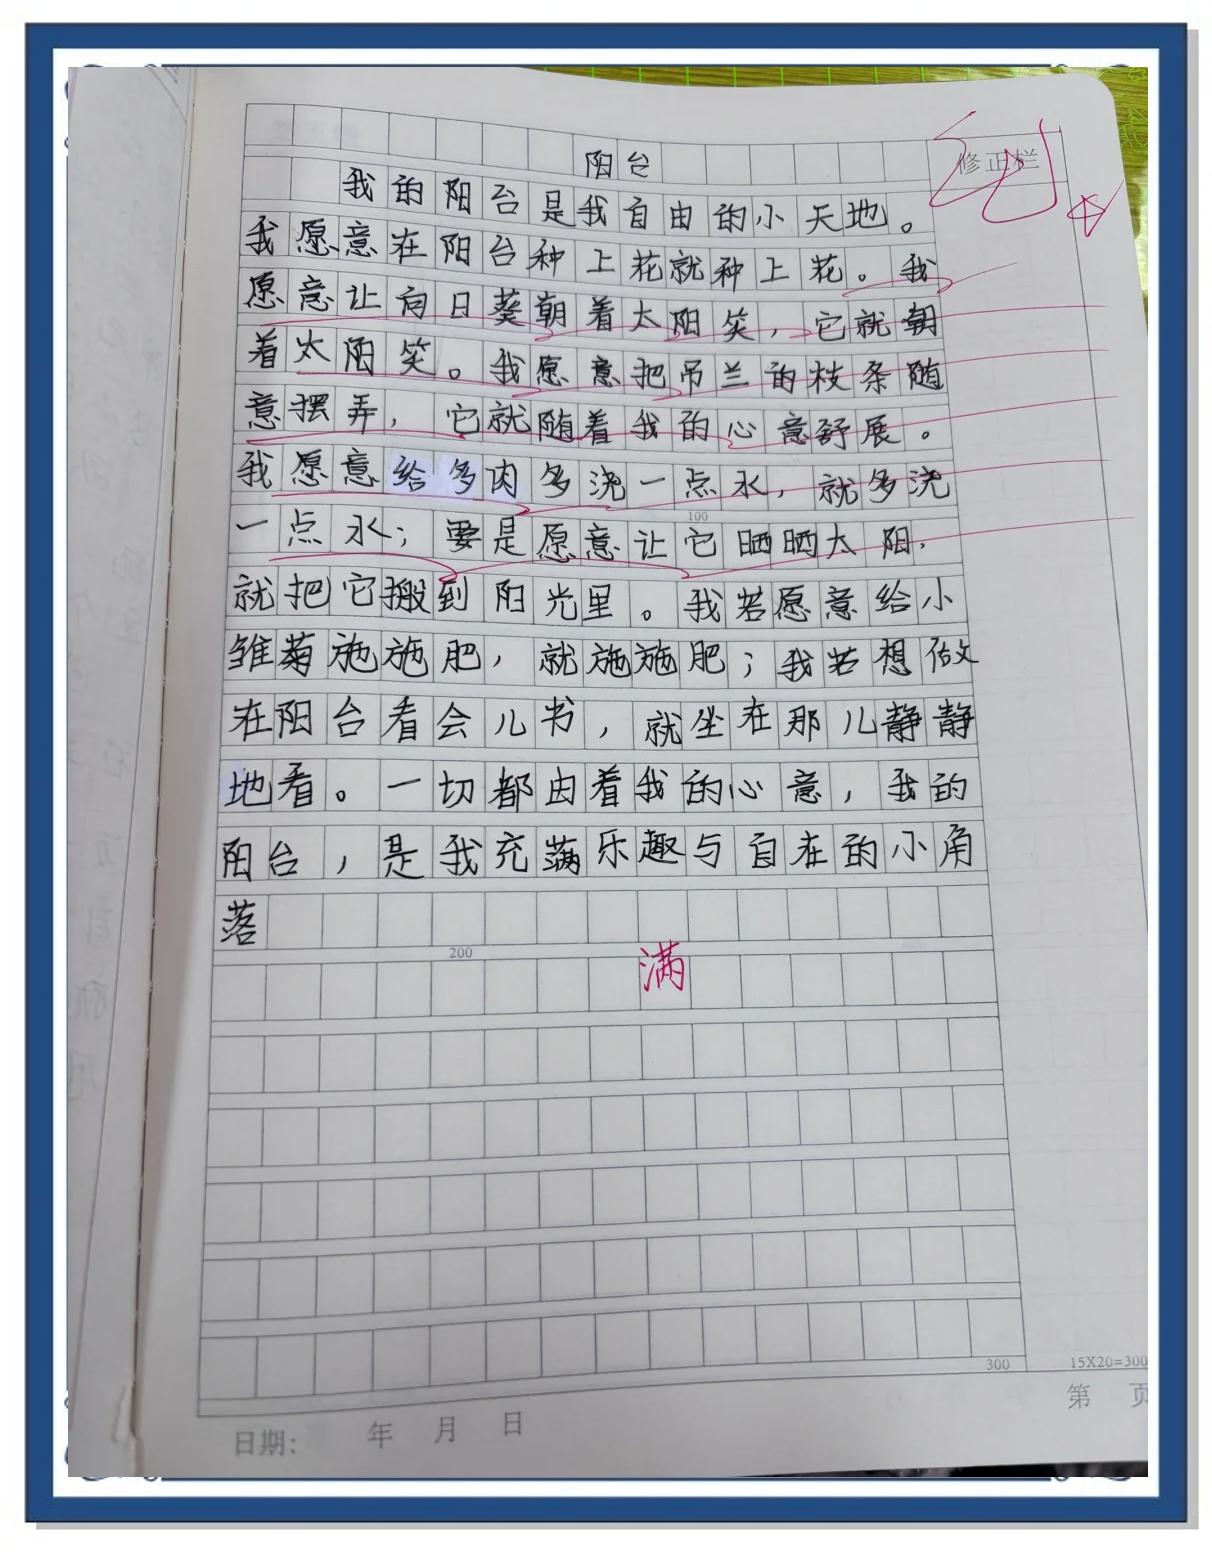 阳台
修正栏
我的阳台是我自由的小天地。
我愿意在阳台种上花就种上花。我
愿意让向日葵朝着太阳笑，它就朝
着太阳笑。我愿意把吊兰的枝条随
意摆弄，它就随着我的心意舒展。
我愿意给多肉多浇一点水，就多浇
100
一点水；要是愿意让它晒晒太阳，
就把它搬到阳光里。我若愿意给小
雏菊施施肥，就施施肥；我若想做
在阳台看会儿书，就坐在那儿静静
地看。一切都由着我的心意，我的
阳台，是我充满乐趣与自在的小角
落
200
满
300
15X20=300
第 页
日期： 年 月 日